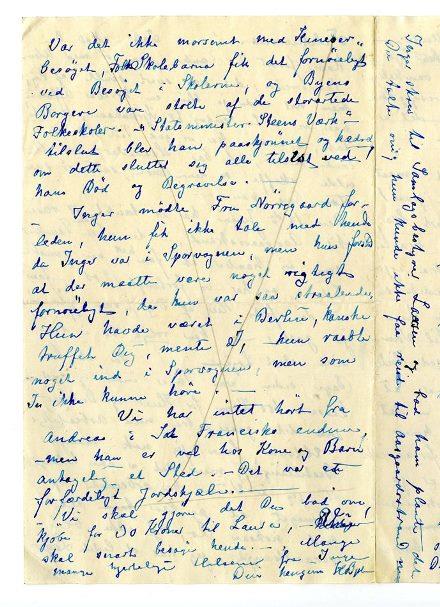 Var det ikke morsomt med Kineser=
besøget, FolkSkolebarna fik det fornøieligt
ved Besøget i Skolerne, og Byens
Borgere var stolte af de storartede
Folkeskoler. - Statsminister Steens Værk -
tilslut blev han paaskjønnet og hædret
om dette sluttet sig alle tilslut ved!
hans Død og Begravelse. -
Inger mødte Fru Nörregaard for-
leden, hun fik ikke tale med hende
da Inger var i Sporvognen, men hun forstod
at det maatte være noget rigtigt
fornöieligt, da hun var saa straalende,
Hun havde været i Berlin, kanske
truffet Dig, mente I, hun raabte
noget ind i Sporvognen, men som
In ikke kunne höre. -
Vi har intet hört fra
Andreas i Sct Francisko endnu,
- men han er vel hos Kone og Barn
antagelig et Sted. - Det var et
forfærdeligt Jordskjælv. -
Vi skal gjøre det Du bad om!
Kjøbe for 20 Kroner til Laura,
skal snart besøge hende. - Mange
mange hjertelige Hilsener fra Inger
Din hengivne
Inger skrev til Samlagsbestyrer og bad ham plante den
Du talte om, hun kunde ikke faa reise til Aasgaardsstrand